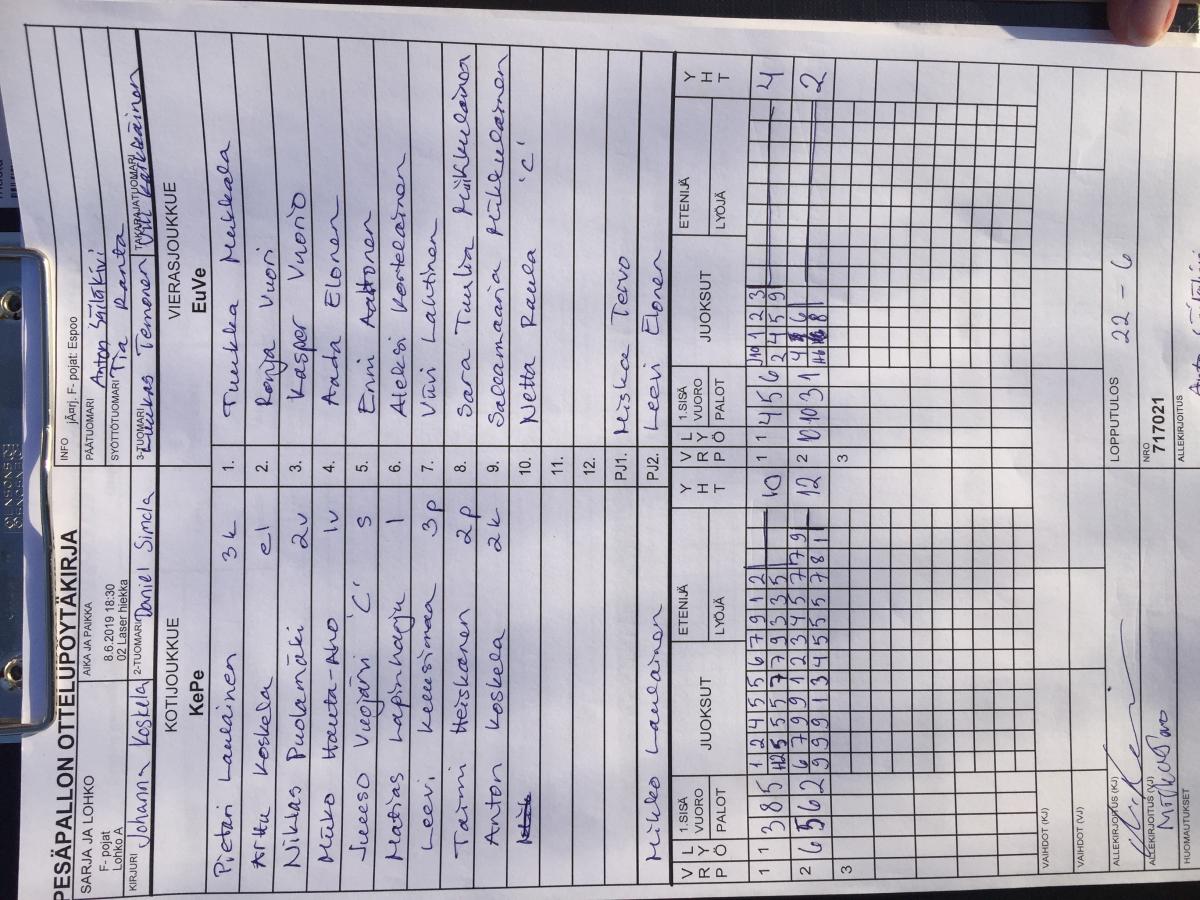 PESÄPALLON OTTELUPÖYTÄKIRJA
SARJA JA LOHKO
F- pojat
Lohko A
AIKA JA PAIKKA
8.6.2019 18:30
02 Laser hiekka
INFO jÄarj. F- pojat: Espoo
PÄÄTUOMARI Anton Säläkivi
SYÖTTÖTUOMARI Tia Ranta
KIRJURI Johanna Koskela
2-TUOMARI Daniel Simola
3-TUOMARI Luukas Temonen
TAKARAJATUOMARI
KOTIJOUKKUE
KePe
VIERASJOUKKUE
EuVe
Pietari Laulainen 3k 1. Tuukka Mukkala
Arttu Koskela el 2. Ronja Vuori
Niklas Puolamäki 2v 3. Kasper Vuorio
Miiko Hauta-Aho 1v 4. Aada Elonen
Juuso Vuojärvi 'C' s 5. Enni Aaltonen
Matias Lapinharju 1 6. Aleksi Kortelainen
Leevi 3p 7. Viivi Lahtinen
Taimi Heiskanen 2p 8. Sara Tuulia Pilkkulainen
Anton Koskela 2k 9. Sallamaaria Pilkkulainen
10. Netta Raula 'C'
11.
12.
PJ1. Miska Tervo
Mikko Laulainen PJ2. Leevi Elonen
V R P L Y Ö 1.SISÄ VUORO PALOT JUOKSUT ETENIJÄ LYÖJÄ Y H T
V R P L Y Ö 1.SISÄ VUORO PALOT JUOKSUT ETENIJÄ LYÖJÄ Y H T
1 1 3 8 5 1 2 4 5 5 6 7 9 1 2 10
1 1 4 5 6 10 1 2 3 4
2 4 5 9
2 6 5 6 2 6 7 9 9 1 2 3 4 5 7 7 9 12
9 9 9 1 3 4 5 5 5 7 8 1
2 10 10 3 1 2
3
3
VAIHDOT (KJ)
VAIHDOT (VJ)
ALLEKIRJOITUS (KJ)
LOPPUTULOS 22 - 6
ALLEKIRJOITUS (VJ)
NRO
717021
HUOMAUTUKSET
ALLEKIRJOITUS